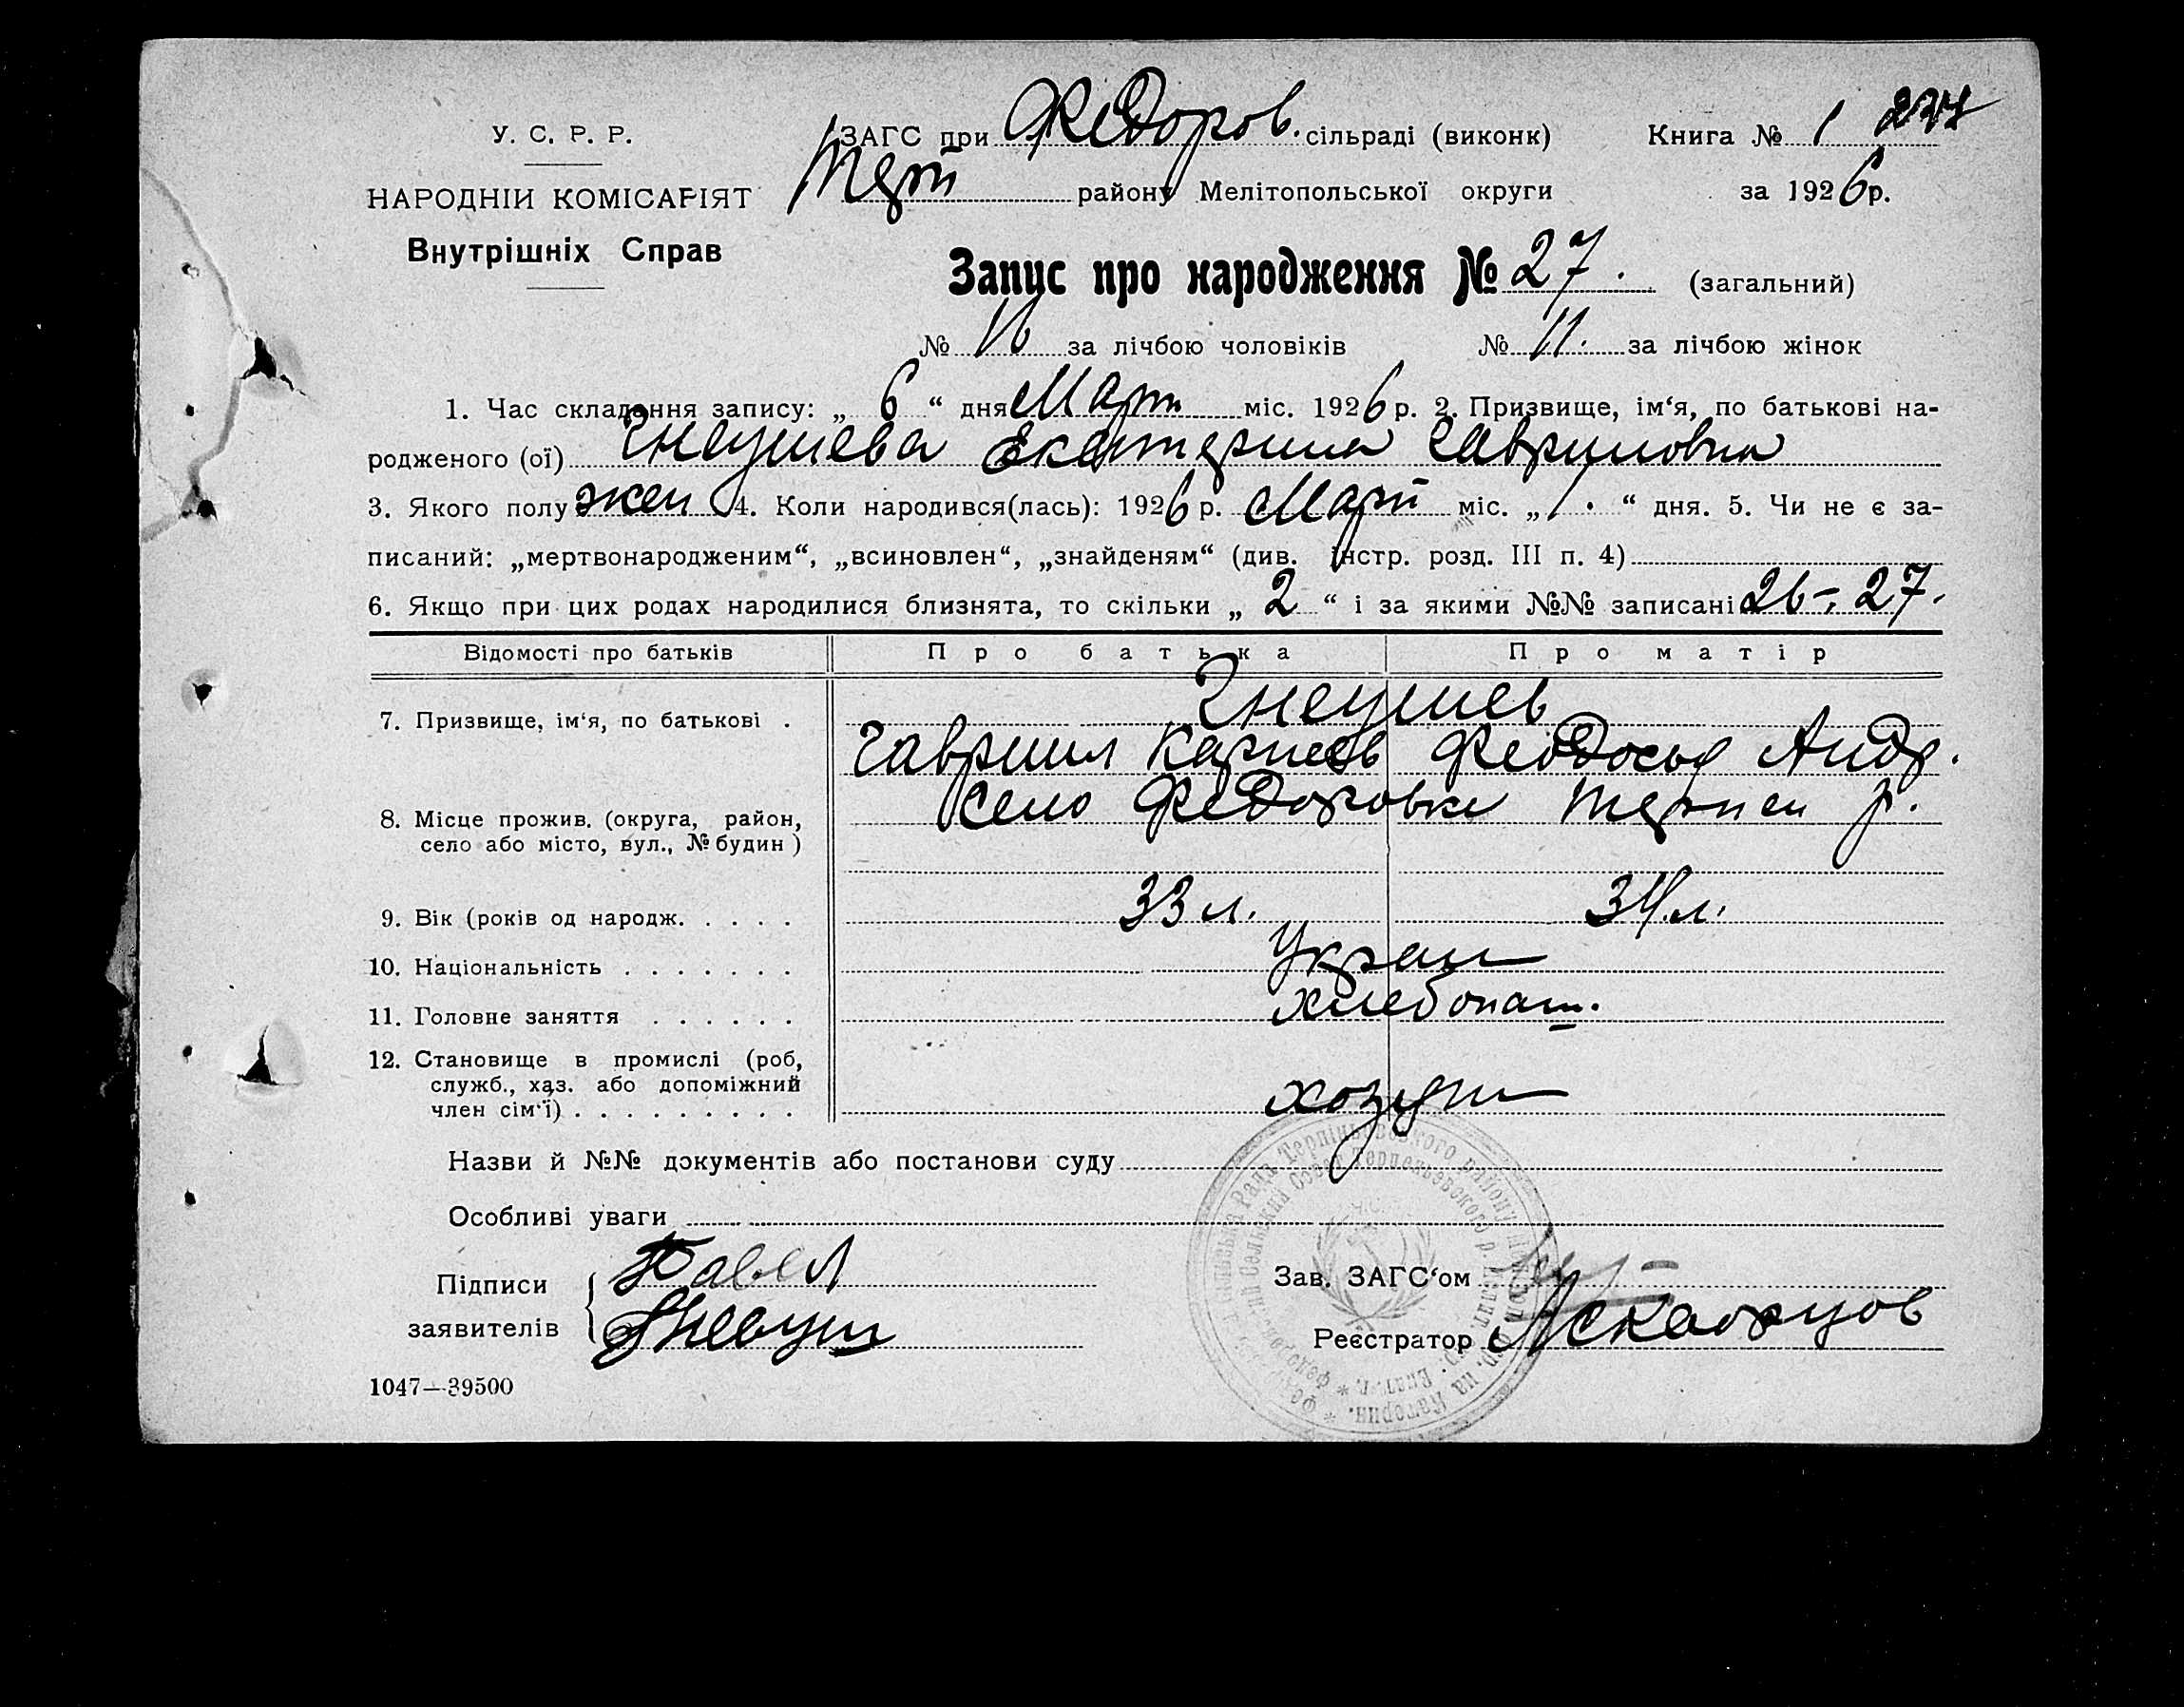 У. С. Р. Р.
НАРОДНІЙ КОМІСАРІЯТ
Внутрішніх Справ
ЗАГС при Федоров. сільраді (виконк) Книга № 1 227
Терп району Мелітопольської округи за 1926 р.
Запис про народження № 27. (загальний)
№ 16 за лічбою чоловіків № 11. за лічбою жінок
1. Час складання запису: „ 6 “ дня Март міс. 1926 р. 2. Призвище, ім‘я, по батькові на-
родженого (ої) Гнеушева Екатерина Гавриловна
3. Якого полу жен 4. Коли народився(лась): 1926 р. Март міс. „ 1 “ дня. 5. Чи не є за-
писаний: „мертвонародженим“, „всиновлен“, „знайденям“ (див. інстр. розд. III п. 4)
6. Якщо при цих родах народилися близнята, то скільки „ 2 “ і за якими №№ записані 26-, 27.
Відомості про батьків Про батька Про матір
7. Призвище, ім‘я, по батькові . Гнеушев
Гавриил Карпов Феодосья Андр.
8. Місце прожив. (округа, район, село або місто, вул., № будин ) село Федоровка Терпен р.
9. Вік (років од народж. . . . . 33 л. 34 л.
10. Національність . . . . . . . Украин
11. Головне заняття . . . . . . хлебопаш.
12. Становище в промислі (роб,
служб., хаз. або допоміжний
член сім‘ї) . . . . . . . . . хозяин
Назви й №№ документів або постанови суду
Особливі уваги
Підписи заявителів Павел
Гнеуш
Зав. ЗАГС‘ом
Реєстратор
1047—39500